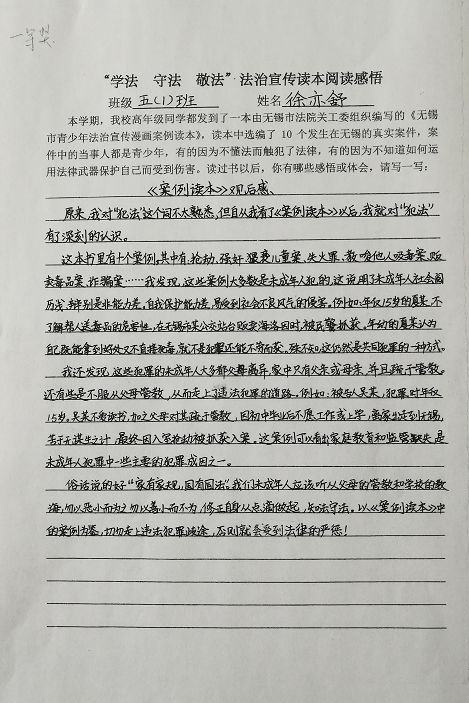 一等奖
“学法 守法 敬法”法治宣传读本阅读感悟
班级 五(1)班 姓名 徐亦舒
本学期，我校高年级同学都发到了一本由无锡市法院关工委组织编写的《无锡
市青少年法治宣传漫画案例读本》，读本中选编了 10 个发生在无锡的真实案件，案
件中的当事人都是青少年，有的因为不懂法而触犯了法律，有的因为不知道如何运
用法律武器保护自己而受到伤害。读过书以后，你有哪些感悟或体会，请写一写：
《案例读本》观后感
原来，我对“犯法”这个词不太熟悉，但自从我看了《案例读本》以后，我就对“犯法”
有了深刻的认识。
这本书里有十个案例，其中有，抢劫、强奸、猥亵儿童案、失火罪、教唆他人吸毒案、贩
卖毒品案、诈骗案……我发现，这些案例大多数是未成年人犯的，这说明了未成年人社会阅
历浅，辨别是非能力差，自我保护能力差，易受到社会不良风气的侵害。例如：年仅15岁的夏某，不
了解帮人送毒品的危害性，在无锡市某公交站台贩卖海洛因时，被民警抓获。年幼的夏某认为
自己既能拿到好处又不直接贩毒，就不是犯罪还能不劳而获。殊不知，这仍然是共同犯罪的一种方式。
我还发现，这些犯罪的未成年人大多都父母离异，家中只有父亲或母亲，并且疏于管教。
还有些是不服从父母管教，从而走上违法犯罪的道路。例如：被告人吴某，犯罪时年仅
15岁。吴某不爱读书，加之父母对其疏于管教，因初中毕业后不愿工作或上学，离家出走到无锡，
苦于无谋生之计，最终因入室抢劫被抓获入案。这案例可以看出家庭教育和监管缺失是
未成年人犯罪中一些主要的犯罪成因之一。
俗话说的好“家有家规，国有国法”。我们未成年人应该听从父母的管教和学校的教
海，勿以恶小而为之勿以善小而不为，修正自身从点滴做起，知法守法。以《案例读本》中
的案例为鉴，切勿走上违法犯罪歧途，否则就会受到法律的严惩！